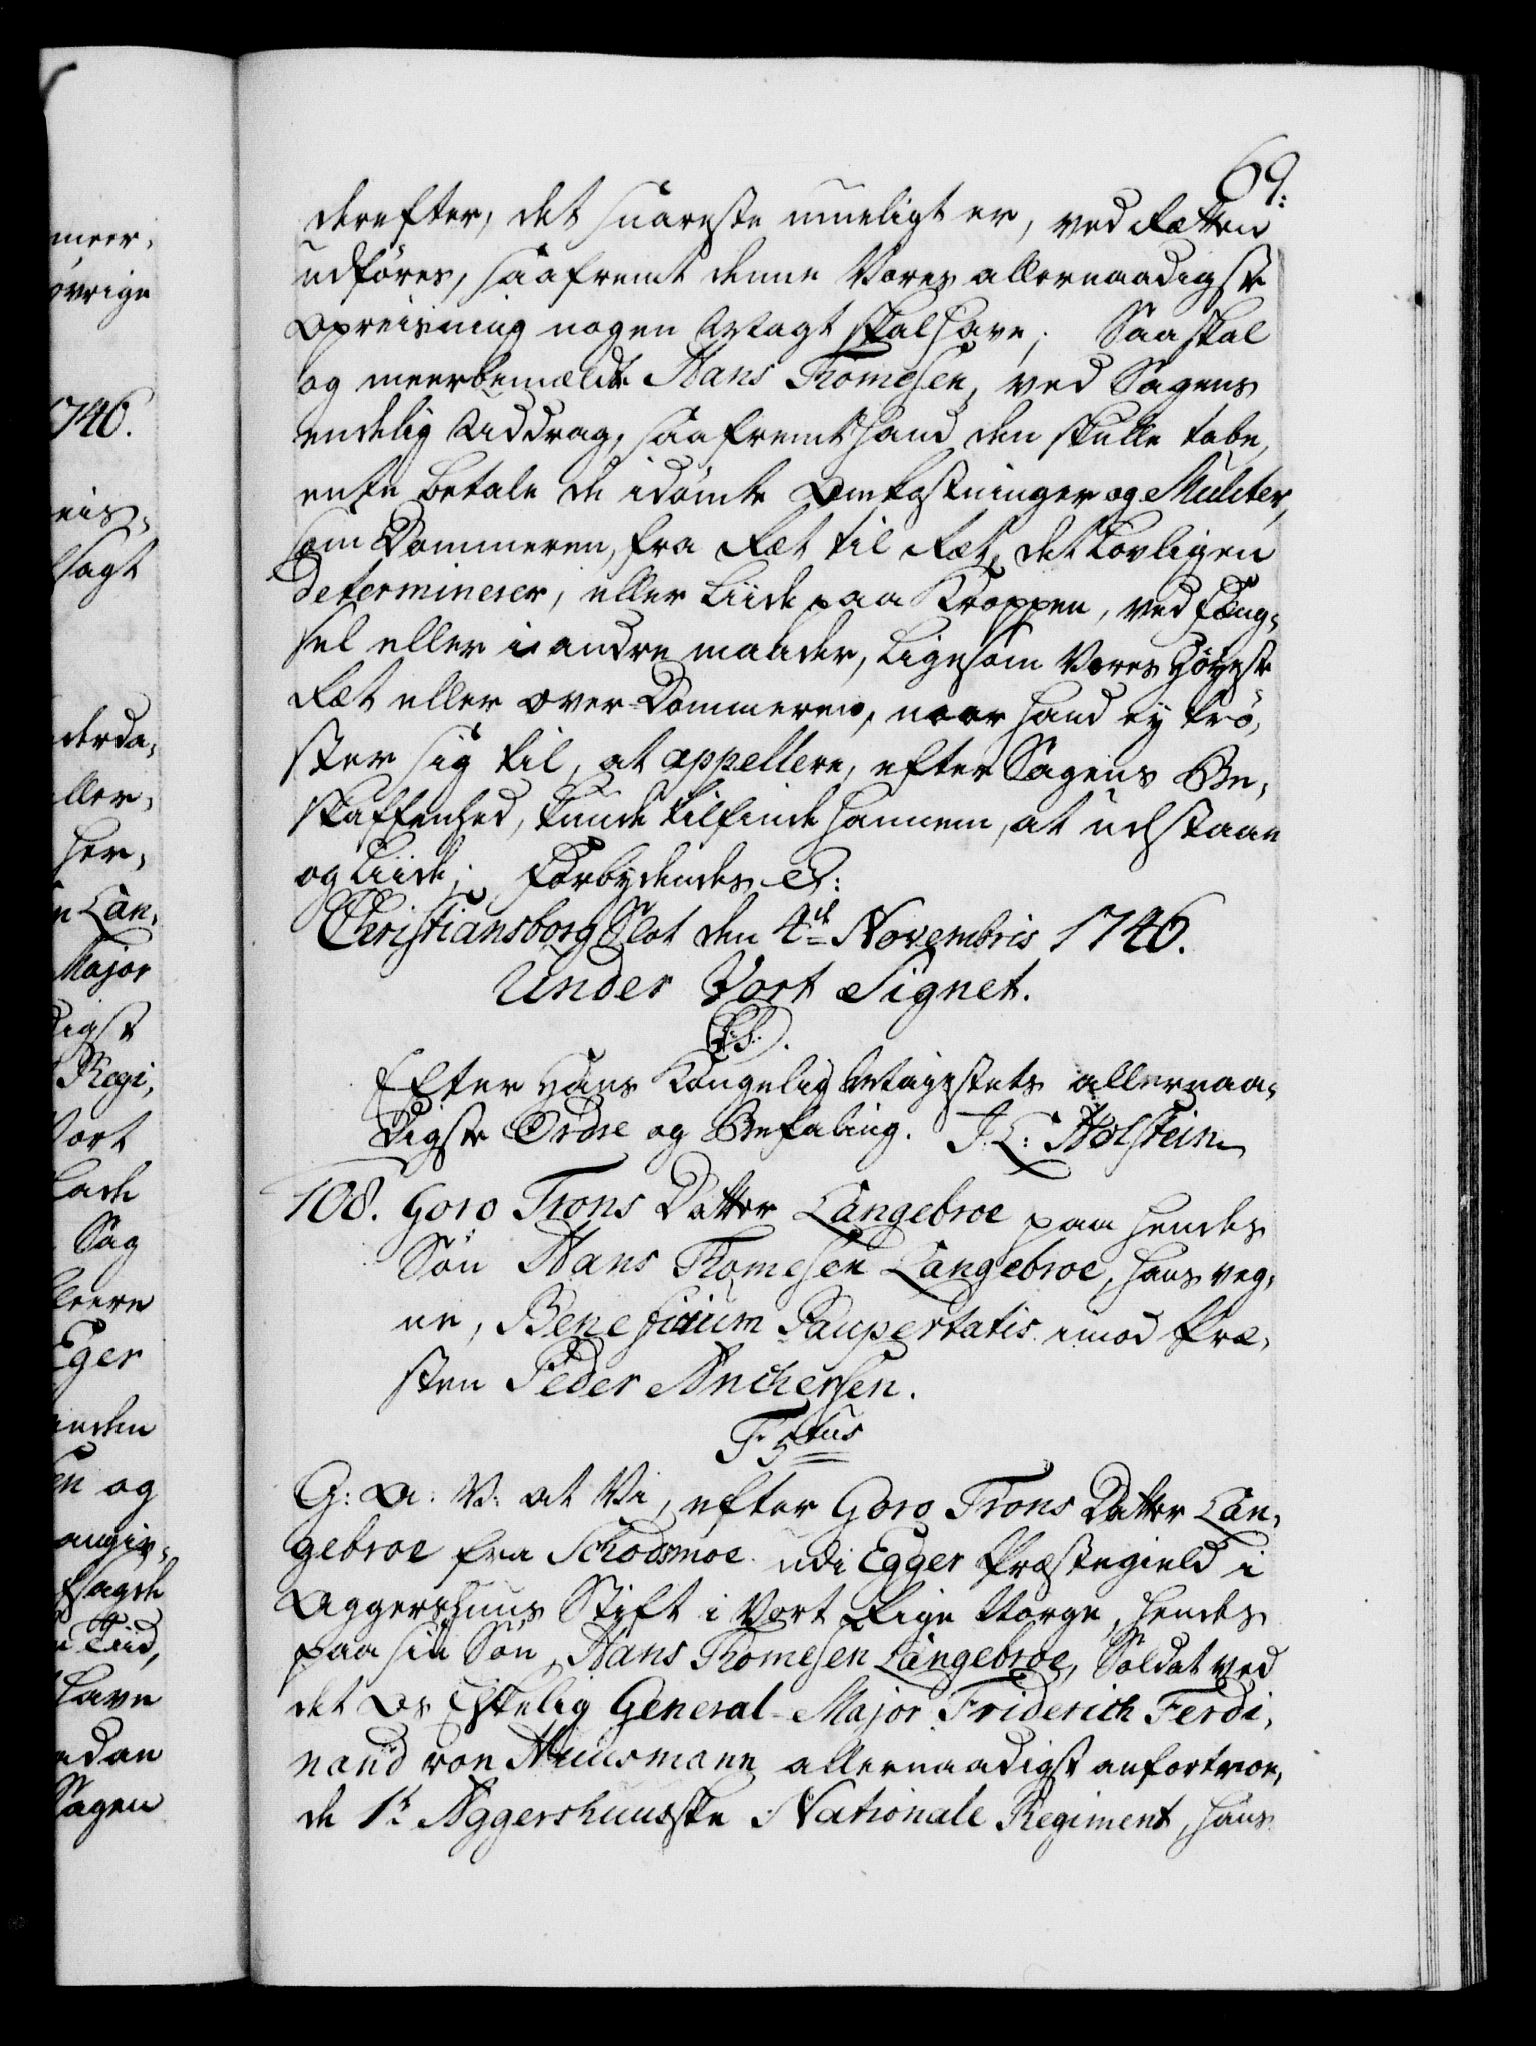 69.
derefter, det snareste mueligt er, ved Retten
udføres, saafremt denne Vores allernaadigste
Opreisning nogen Magt skal have; Saa skal
og meerbemælte Hans Thomesen, ved Sagens
endelig Uddrag, saafremt hand den skulle tabe,
enten betale de idømte Omkostninger og Mulcter,
som Dommeren, fra Ræt til Ræt, det Lovligen
determinerer, eller Liide paa Kroppen, ved Fæng-
sel eller i andre maader, Ligesom Vores Høyeste
Ræt eller Over-Dommeren, naar hand ey trø-
ster sig til, at appellere, efter Sagens Be-
skaffenhed, kunde tilfinde hannem, at udstaae
og Liide; Forbydendes &:
Christiansborg Slot den 4de Novembris 1746.
Under Vort Signet.
(L.S.).
Efter Hans Kongelig Mayestets allernaa-
digste Ordre og Befaling. J. L: Holstein
108. Goro Trons Datter Langebroe paa hendes
Søn Hans Thomesen Langebroe, hans veg-
ne, Beneficium Paupertatis imod Præ-
sten Peder Anchersen.
F. 5tus
G: A: V: at Vi, efter Goro Trons Datter Lan-
gebroe fra Schodsmoe udi Egger Præstegield i
Aggershuus Stift i Vort Rige Norge, hendes
paa sin Søn, Hans Thomesen Langebroe, Soldat ved
det Os Elskelig General-Major Friderich Ferdi-
nand von Huusmann allernaadigst anfortroe-
de 1te Aggershuusske Nationale Regiment, hans